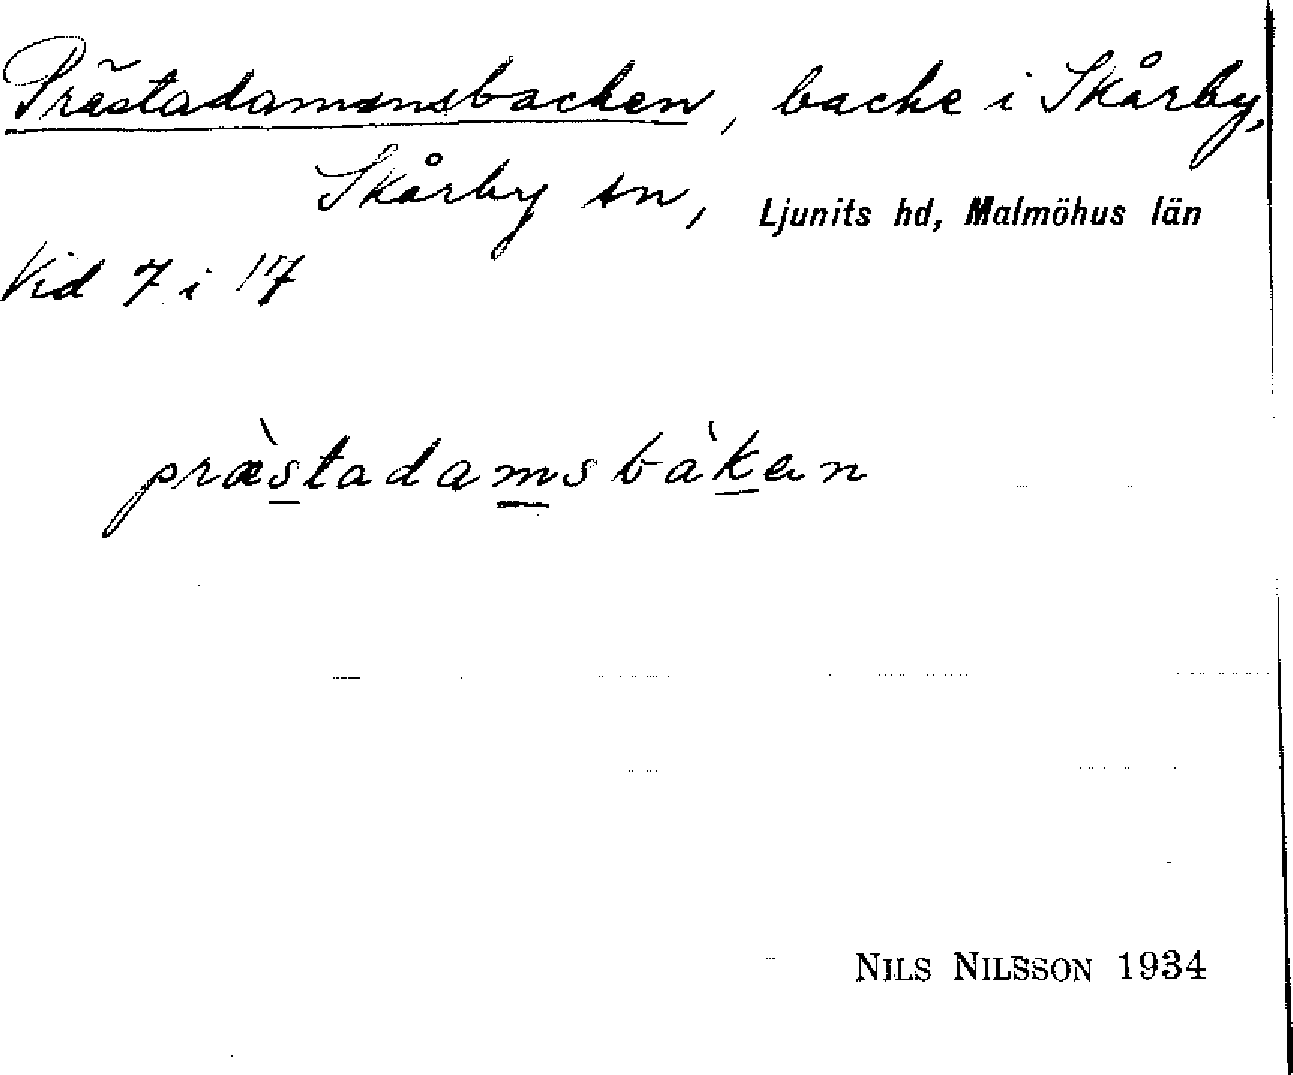 Prästadammsbacken, backe i Skårby,
Skårby sn, Ljunits hd, Malmöhus län
Vid 7 i 17
præ̀stadamsbàkan
NILS NILSSON 1934